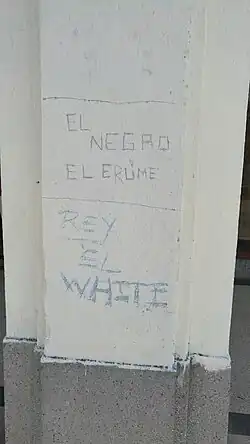 EL
NEGRO
Y
EL ERUME
REY
EL
WHITE